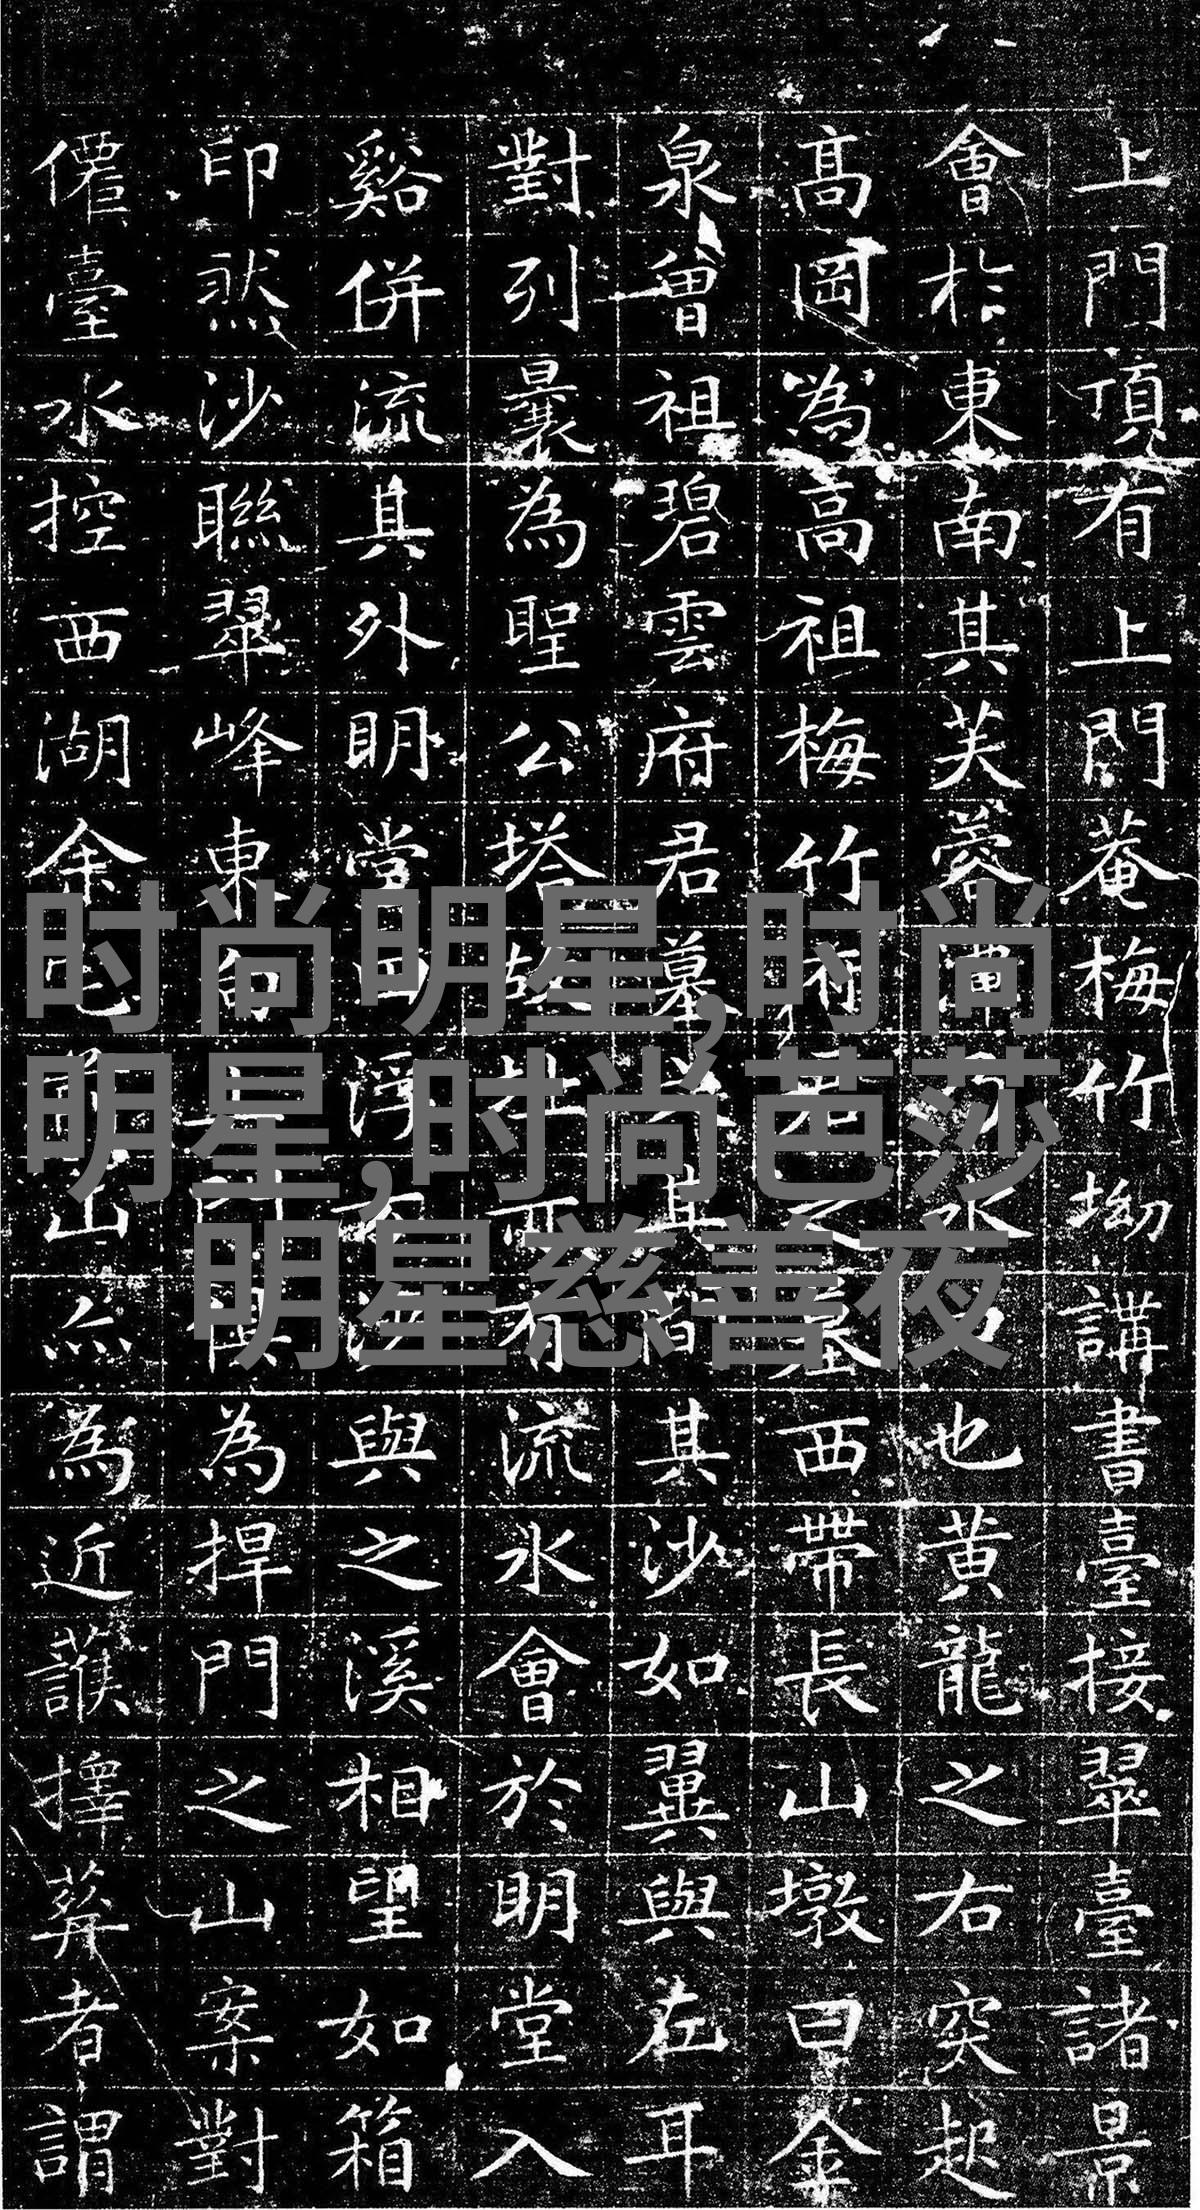 上門頂有上門菴梅竹坳講書臺接翠臺諸景
會於東南其芙蓉水也黃龍之右突起
高岡為高祖梅竹府君之墓西帶長山墩曰金
泉曾祖碧雲府君墓其間其沙如翼與左耳
對列曩為聖公塔故址亦有流水會於明堂入
谿併流其外明堂浮沙與之溪相望如箱
印然沙聯翠峰東向上門為捍門之山案對
僊臺水控西湖余宅前山亦為近護擇葬者謂
时尚明星,时尚
明星,时尚芭莎
明星慈善夜